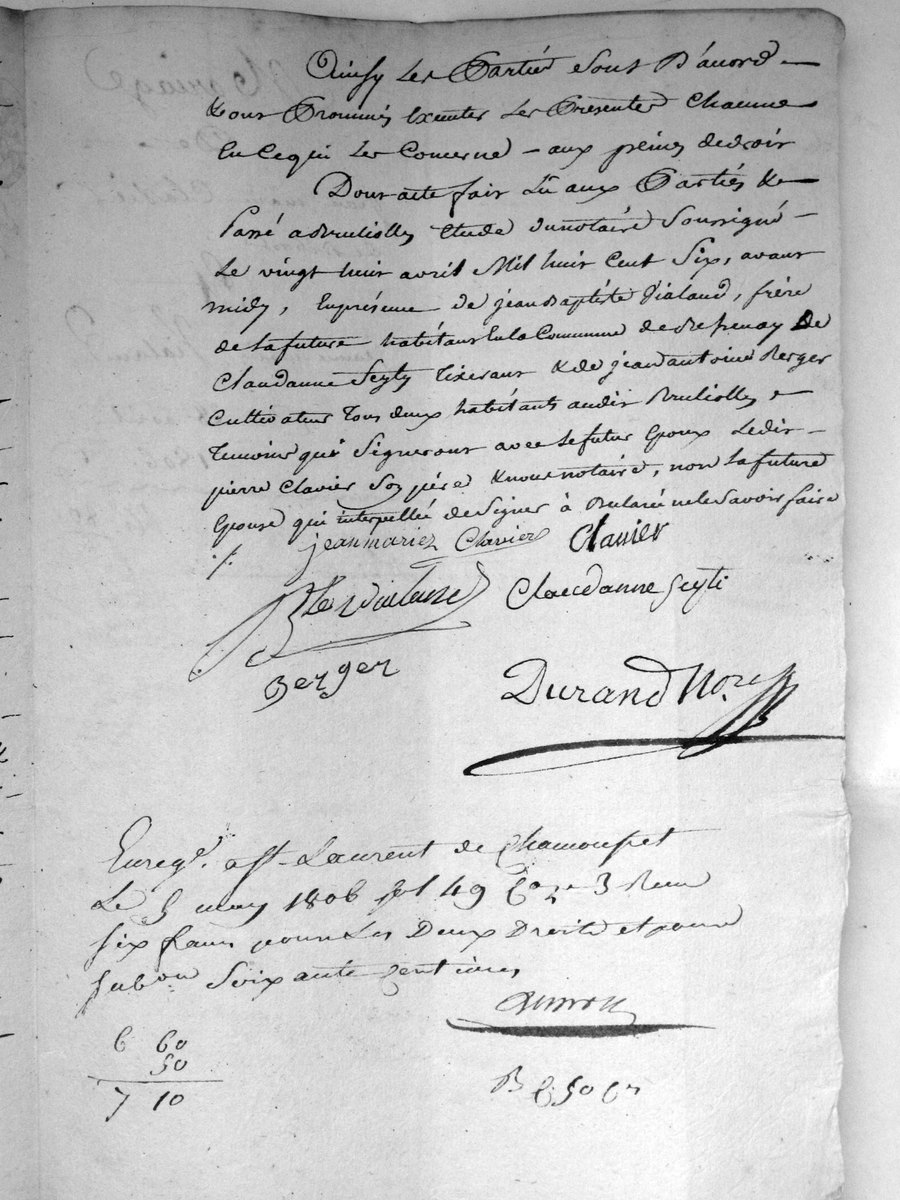 Ainsy les Parties sont D'acord
tous Promis Executer les Presentes Chacune
En Cequi les Concerne - aux peines dedroit
Dont acte fait Lû aux Parties &
Passé aBrulliolles Etude dunotaire Soussigné
Le vingt huit avril Mil huit Cent Six, avant
midy, Enprésence de jeanBaptiste Vialand, frère
de Lafuture habitant Enla Commune de &de
Claudanne Seyty Tixerant &de jeanantoine Berger
Cultivateur Tous deux habitants audit Brulliolles
Temoins qui Signeront avec Lefutur Epoux Ledit
pierre Clavier Son père &nous notaire, non Lafuture
Epouse qui interpellée deSigner à Déclaré nelesavoir faire
./.
jeanmariez Clavier Clavier
Claudanne Seyti
Berger
Durand Nore
Enregé. a St. Laurent de Chamousset
Le 5 may 1806 fol 49 3 Recu
six francs pour Les Deux Droits et pour
subon Soixante Centimes
6 60
50
7 10